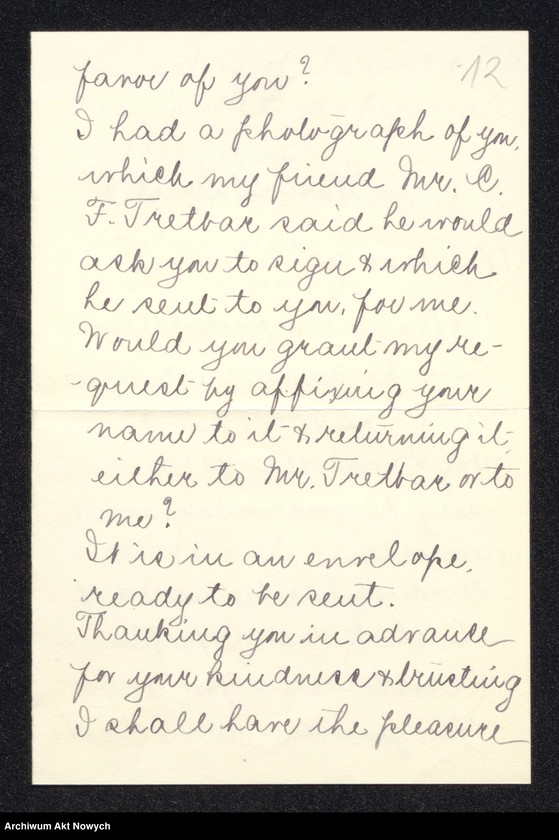 12
favor of you?
I had a photograph of you,
which my friend Mr. C.
F. Tretbar said he would
ask you to sign & which
he sent to you, for me.
Would you grant my re-
-quest by affixing your
name to it & returning it,
either to Mr. Tretbar or to
me?
It is in an envelope,
ready to be sent.
Thanking you in advance
for your kindness & trusting
I shall have the pleasure
Archiwum Akt Nowych